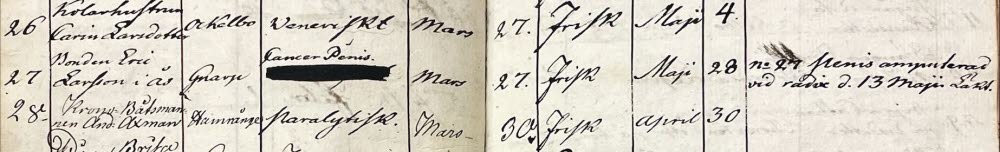 Kolarhustrun
26 Carin Larsdotter Ockelbo Veneriskt Mars 27. Frisk Maji 4.
Bonden Eric Cancer Penis.
27 Larsson i Ås Gnarp Mars 27. Frisk Maji 28 no 27 Penis amputerad
vid radix d. 13 Maji. Läkt.
28 Krono Båtsman-
nen And. Axman Hamrånge Paralytisk. Mars 30 Frisk April 30
Brita